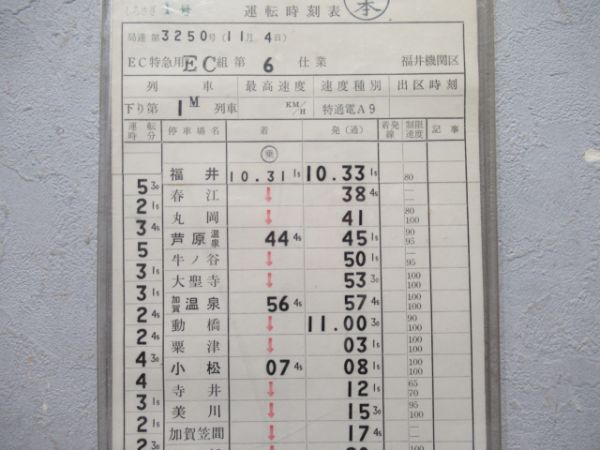 しらさぎ 1 号 運転時刻表 本
局達第3250号(11月4日)
EC特急用EC組第 6 仕業 福井機関区
列車 最高速度 速度種別 出区時刻
下り第 1M 列車 KM/H 特通電A9
運転時分 停車場名 着 発(通) 着発線 制限速度 記事
乗
福井 10.31 1s 10.33 1s 80
5 30
春江 ↓ 38 4s —
2 1s
丸岡 ↓ 41 — 80
3 4s
芦原温泉 44 4s 45 1s 90 95
5
牛ノ谷 ↓ 50 1s — 95
3 1s
大聖寺 ↓ 53 30 100 100
3 1s
加賀温泉 56 4s 57 4s 100 100
2 4s
動橋 ↓ 11.00 30 90 100
2 4s
粟津 ↓ 03 1s 100 100
2 4s
小松 07 4s 08 1s 100 100
4 30
寺井 ↓ 12 1s 65 70
4
美川 ↓ 15 30 95 100
3 1s
加賀笠間 ↓ 17 4s —
2 1s
100
2 30